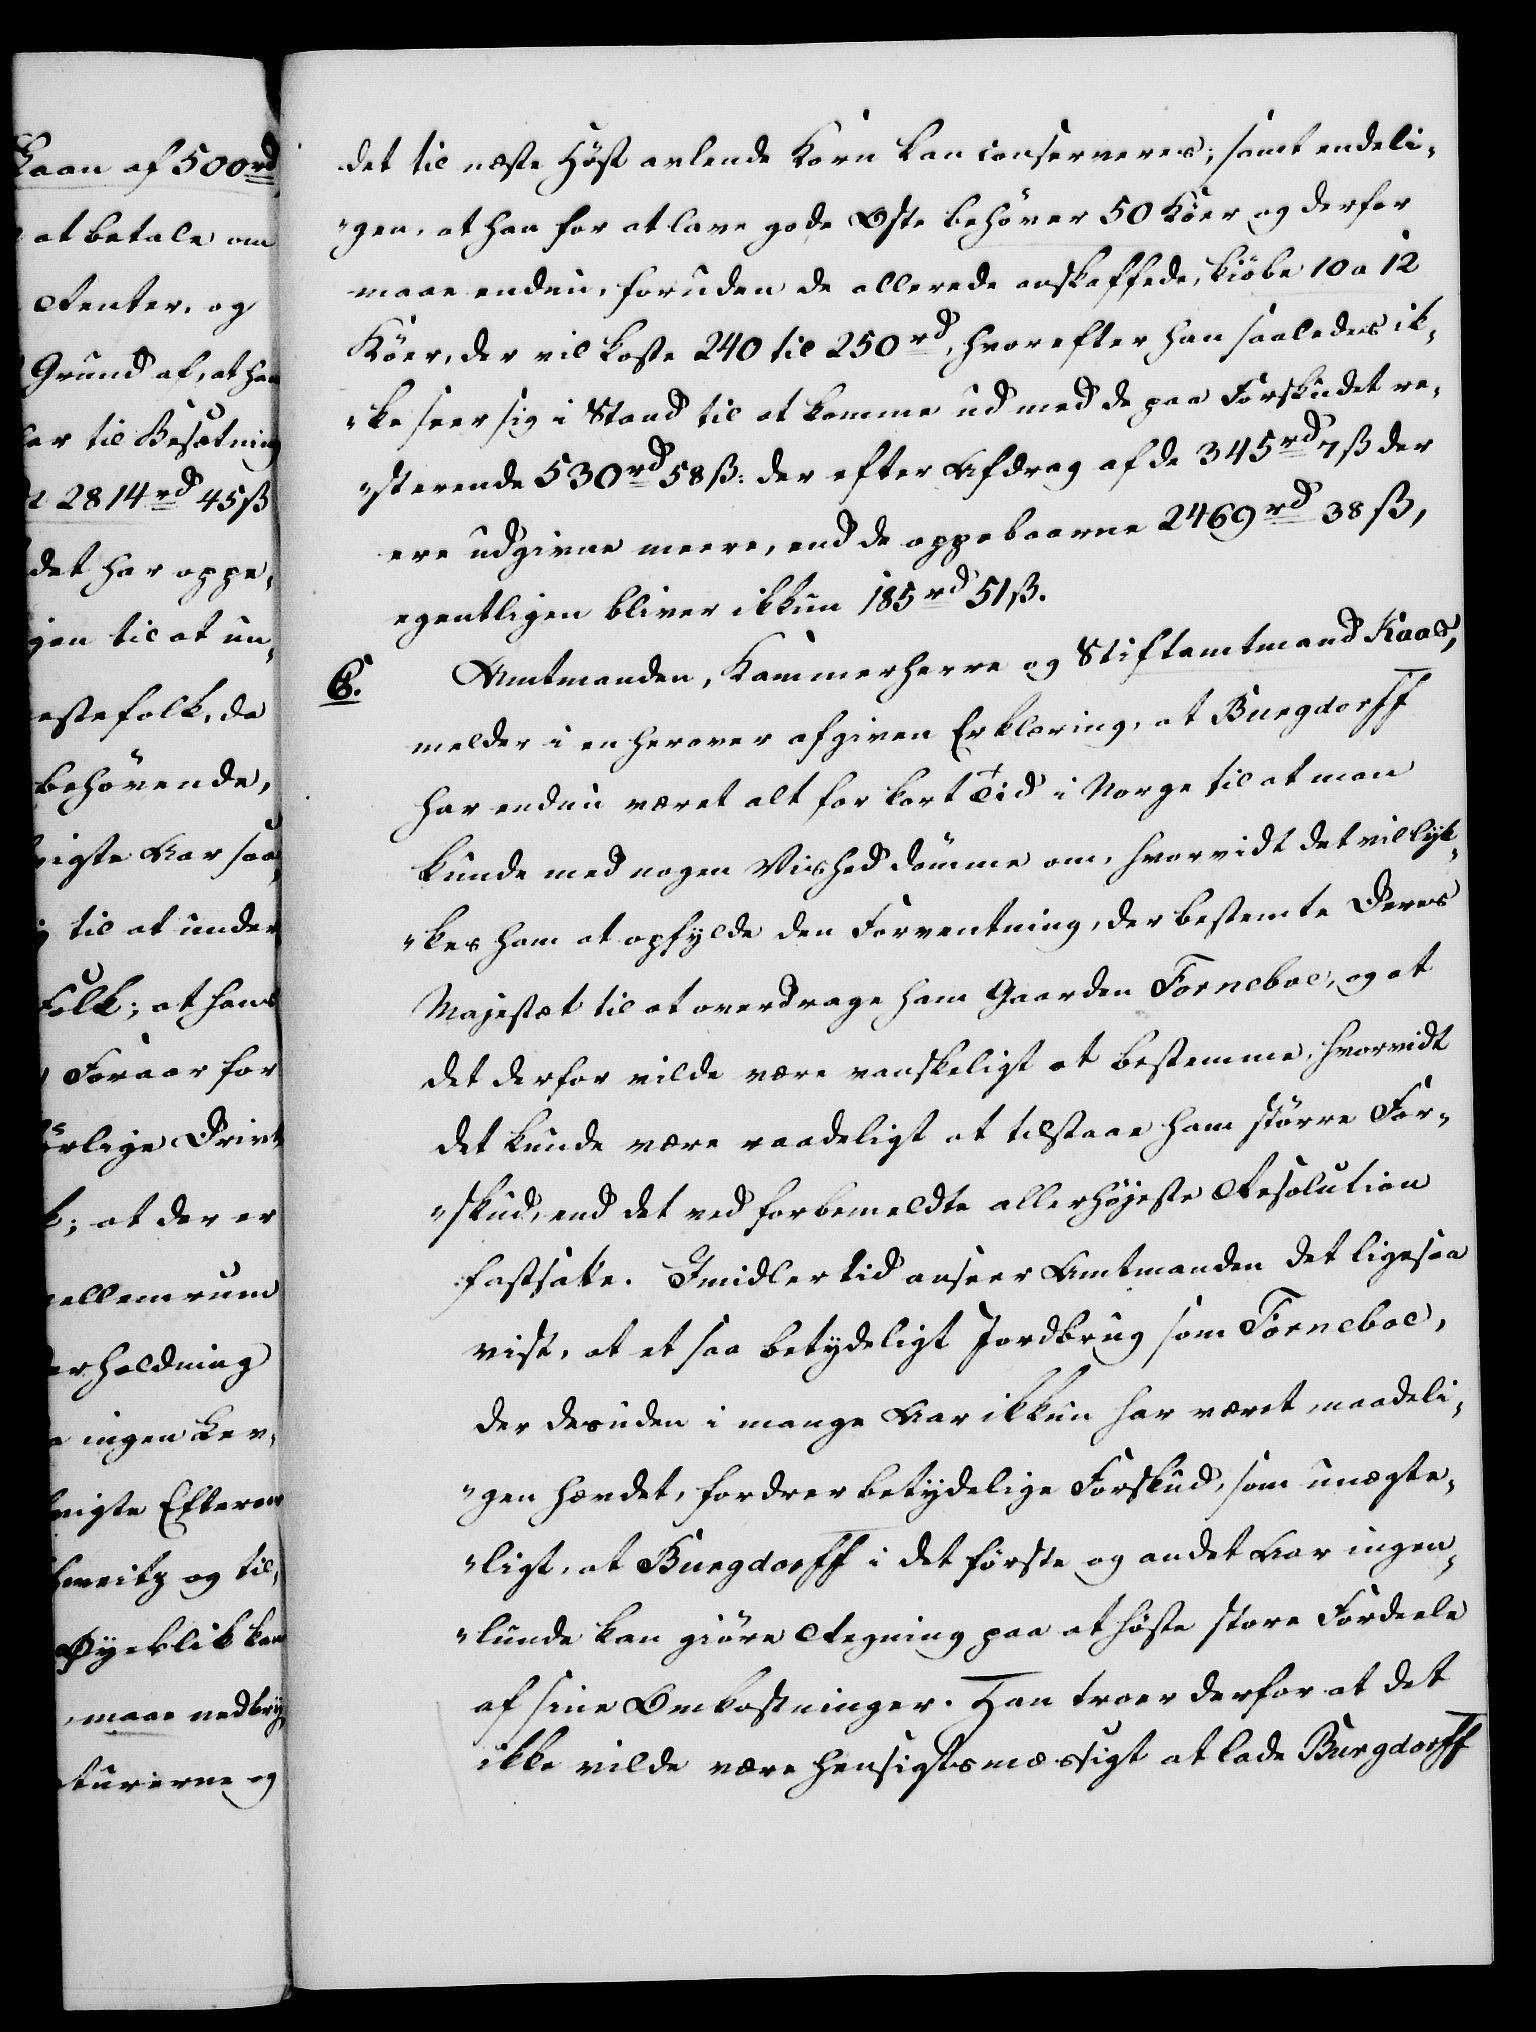 Laan af 500 rd
at betale om
Renter, og
Grund af, at han
ler til Besætning
2814 rd 45 ß
det har oppe,
gen til at un,
estefolk, da
behövende,
vigste Aar saa
til at under
Folk; at hans
Foraar for
örlige Drivt
k; at der er
mellemrum
erholdning
ingen Lev,
vigste Efteraar
hweitz og til,
Øyeblik kan
maae nedbry
turerne og
det til næste Höst avlende Korn kan conserveres; samt endeli,
"gen, at han for at lave gode Oste behöver 50 Köer og derfor
maae endnu, foruden de allerede anskaffede, kiöbe 10 a 12
Köer, der vil koste 240 til 250 rd, hvorefter han saaledes ik,
"ke seer sig i Stand til at komme ud med de paa Forskudet re,
"sterende 530 rd 58 ß: der efter Afdrag af de 345 rd 7 ß der
ere udgivne meere, end de oppebaarne 2469 rd 38 ß,
egentligen bliver ikkun 185 rd 51 ß.
6. Amtmanden, Kammerherre og Stiftamtmand Kaas,
melder i en herover afgiven Erklæring, at Burgdorff
har endnu været alt for kort Tid i Norge til at man
kunde med nogen Vished dömme om, hvorvidt det vil lyk,
"kes ham at opfylde den Forventning, der bestemte Deres
Majestæt til at overdrage ham Gaarden Forneboe, og at
det derfor vilde være vanskeligt at bestemme, hvorvidt
det kunde være raadeligt at tilstaae ham större For,
"skud, end det ved forbemeldte allerhöjeste Resolution
fastsatte. Imidlertid anseer Amtmanden det ligesaa
vist, at et saa betydeligt Jordbrug som Forneboe,
der desuden i mange Aar ikkun har været maadeli,
"gen hævdet, fordrer betydelige Forskud, som unægte,
"ligt, at Burgdorff i det förste og andet Aar ingen,
"lunde kan giöre Regning paa at höste store Fordeele
af sine Omkostninger. Han troer derfor at det
ikke vilde være hensigtsmæssigt at lade Burgdorff